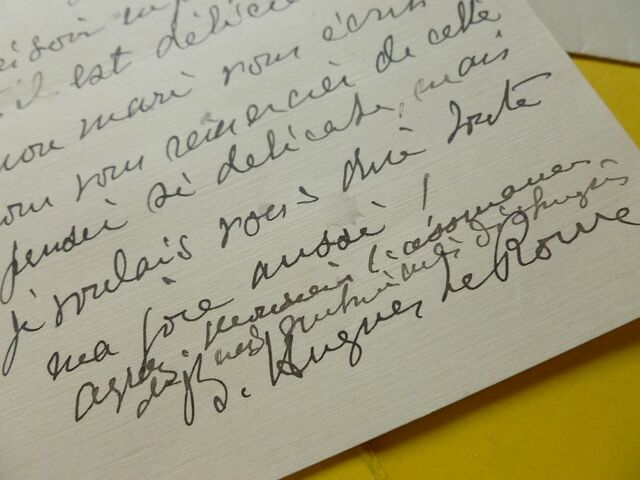 il est délicie
mon mari vous écrira
pour vous remercier de cette
pensée si délicate, mais
je voulais vous dire toute
ma joie aussi !
agréez, monsieur l'assurance
de mes sentiments distingués
S. Hugues Le Roux